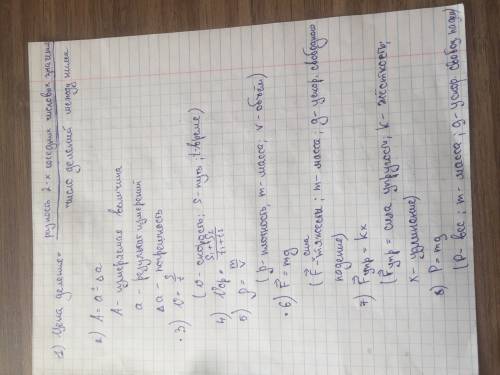 1) Цена деления = разность 2-х соседних числовых значений
число делений между ними
2) A = a ± Δa
A - измеряемая величина
a - результат измерений
Δa - погрешность
3) v = s/t
(v - скорость; s - путь; t - время)
4) Vср = s1+s2/t1+t2
5) ρ = m/V
(ρ - плотность, m - масса; v - объём)
6) F = mg
(F - сила тяжести; m - масса; g - ускор. свободного
падения)
7) Fупр = kx
(Fупр = сила упругости; k - жёсткость;
x - удлинение)
8) P = mg
(P - вес; m - масса; g - ускор свобод. паден)